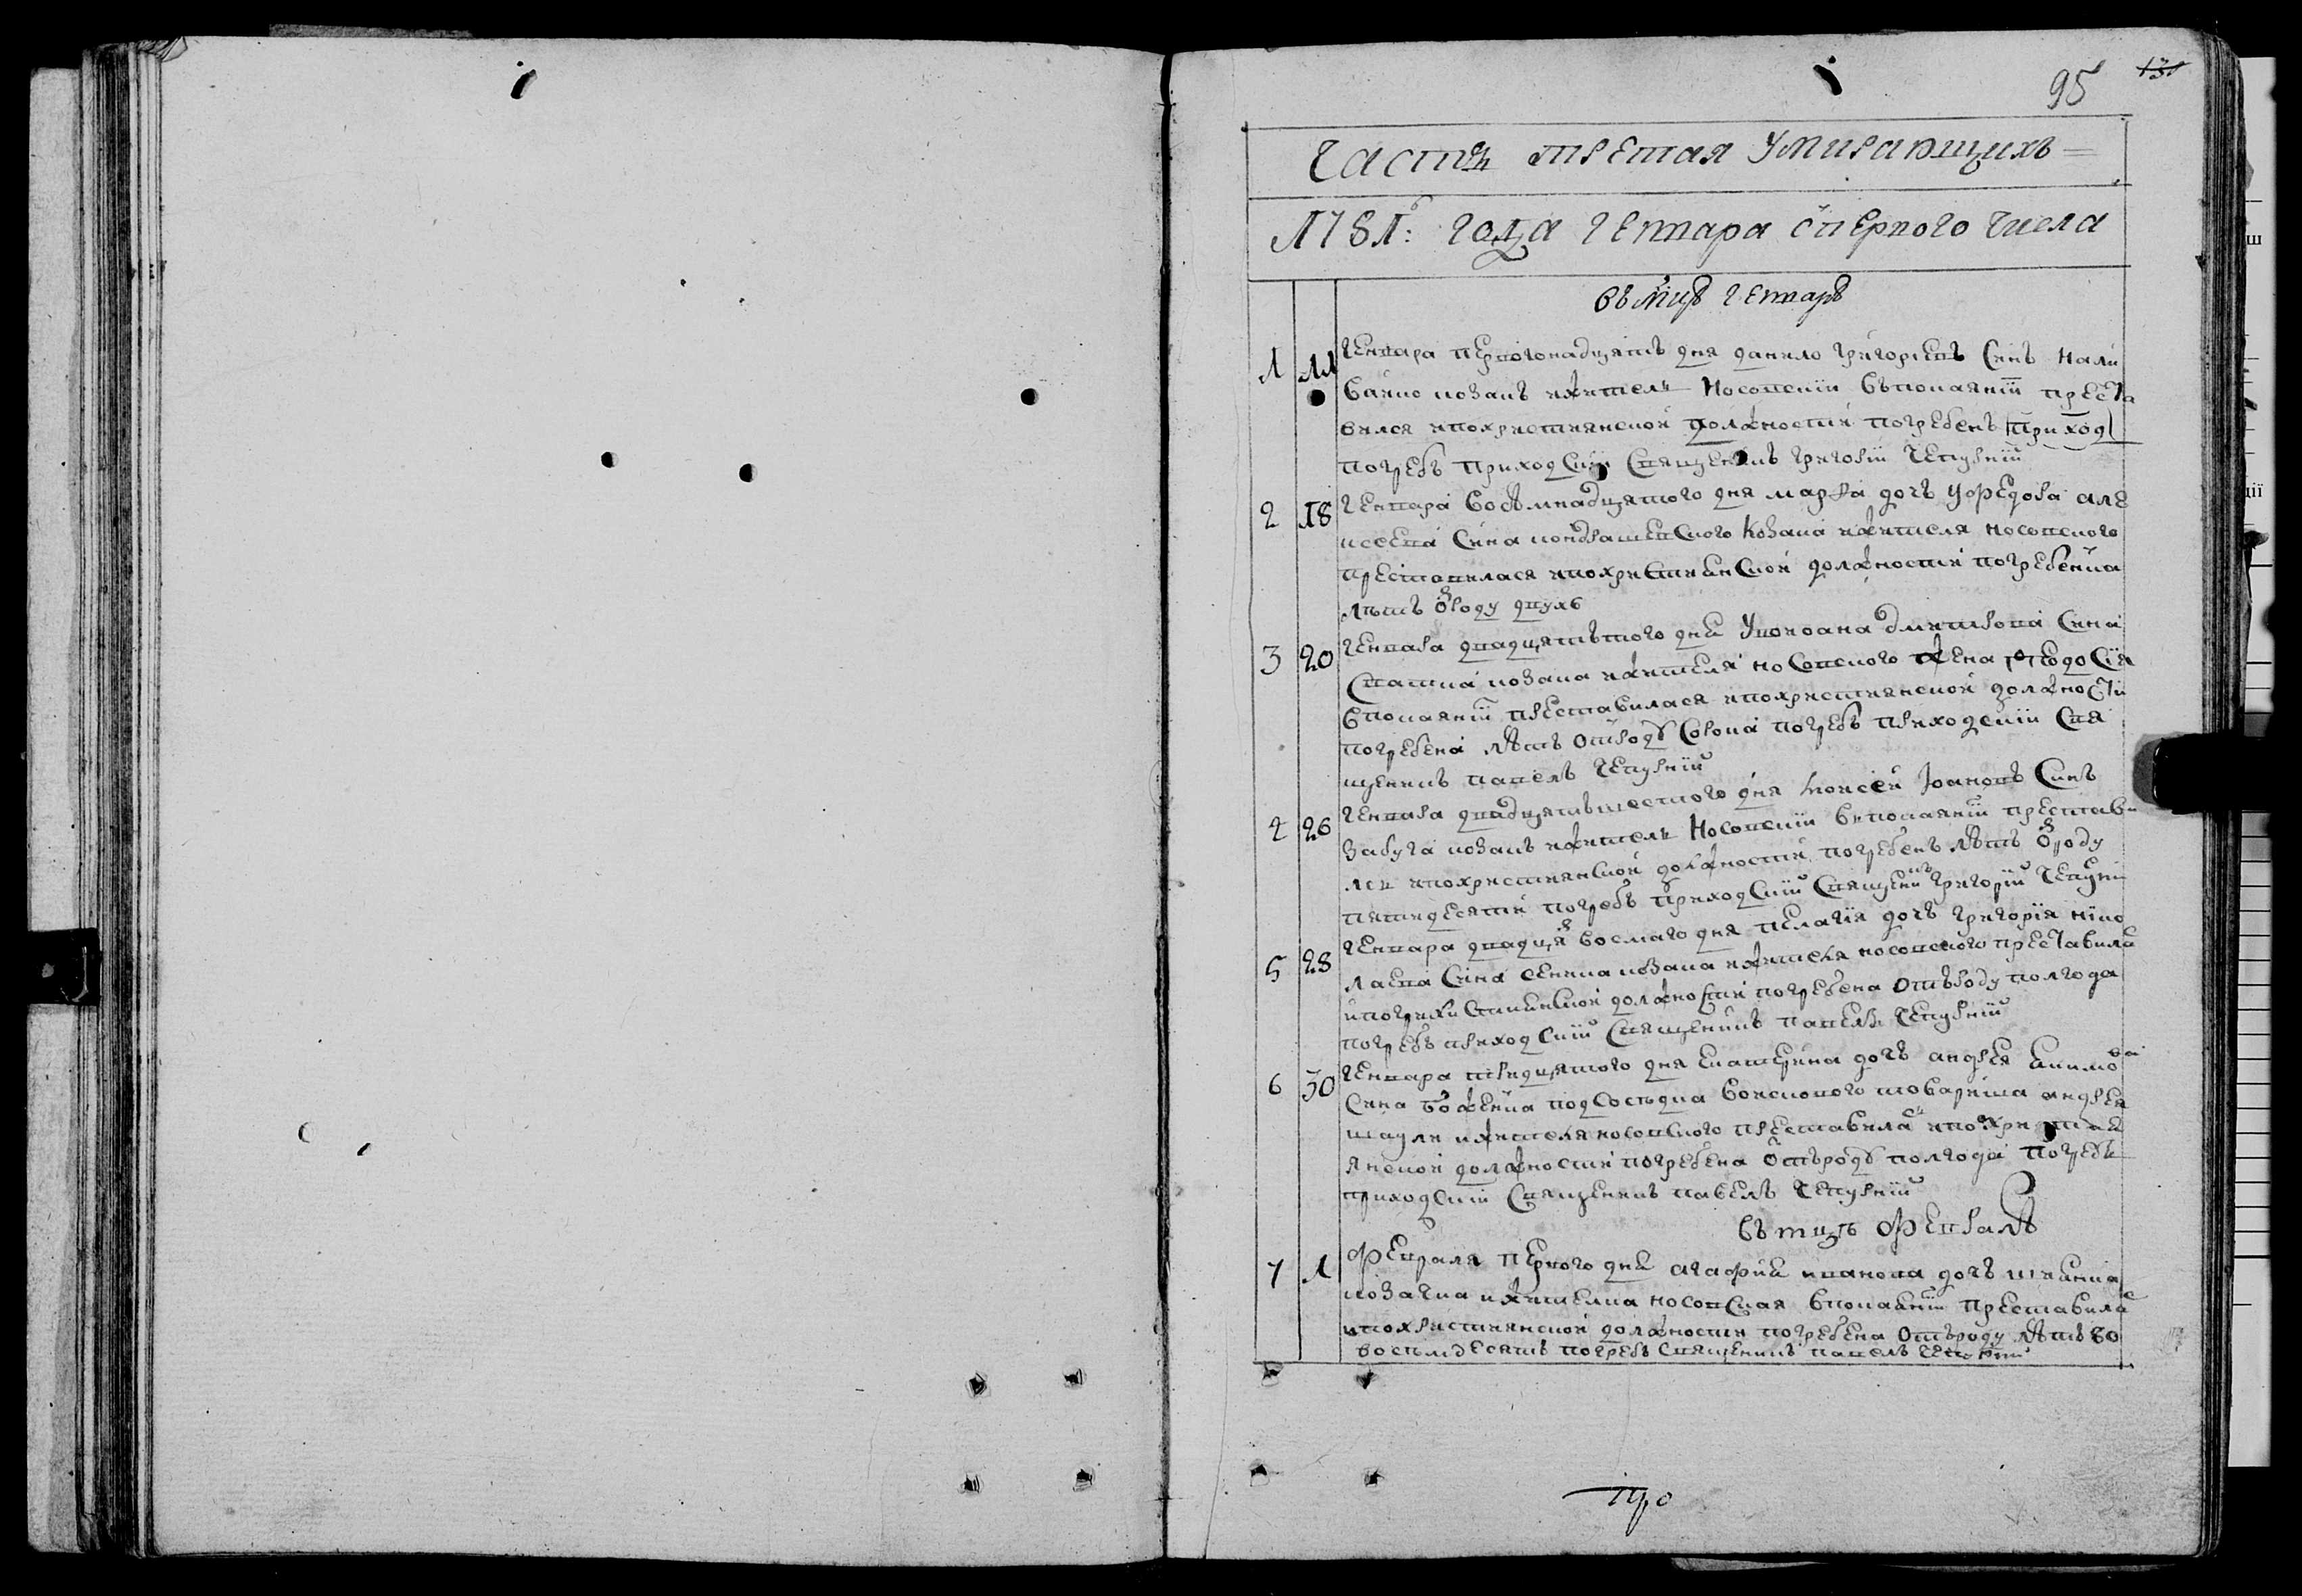 95 131
Часть третая Умирающихъ
1781: года генвара с первого числа
въ мцѣ генварѣ
1 11 генвара первогонадцать дня данило григориевъ синъ нали
вайко козакъ и житель Носовский въ покаянии преста
вился и по христианской должности погребенъ приход
погребъ приходский священикъ григорий Чепурний
2 18 генвара восѣмнадцятого дня марфа дочъ у федора але
ксеева сина кондрашевского козака и жителя носовского
преставилася и по христианской должности погребенна
лѣтъ о роду двухъ
3 20 генвара двадцятьтого дня у иоана дмитрова сина
козака и жителя носовского жена феодосия
в покаянии преставилася и по христианской должности
погребена лѣтъ от роду сорока погребъ приходский свя
щеникъ павелъ Чепурний
4 26 генвара двадцятьшестого дня моисей иоановъ синъ
забуга козакъ и житель Носовский в покаянии престави
лся и по христианской должности погребенъ лѣтъ о роду
пятидесяти погребъ приходский священикъ григорий Чепурний
5 28 генвара двадця восмаго дня пелагия дочъ григория нико
лаева сина козака и жителя носовского преставила
и по христианской должности погребена отъ роду полгода
погребъ приходский священикъ павелъ Чепурний
6 30 генвара тридцятого дня екатерина дочъ андрея
сина подсосѣдка войскового товариша андрея
и жителя носовского преставила и по христи
янской должности погребена отъ роду полгода погребъ
приходский священикъ павелъ Чепурний
въ мцѣ февралѣ
7 1 февраля первого дня агафия иванова дочъ
козачка и жителка носовская в покаянии преставила
и по христианской должности погребена отъ роду лѣтъ 80
восѣмдесятъ погребъ священикъ павелъ Чепурний